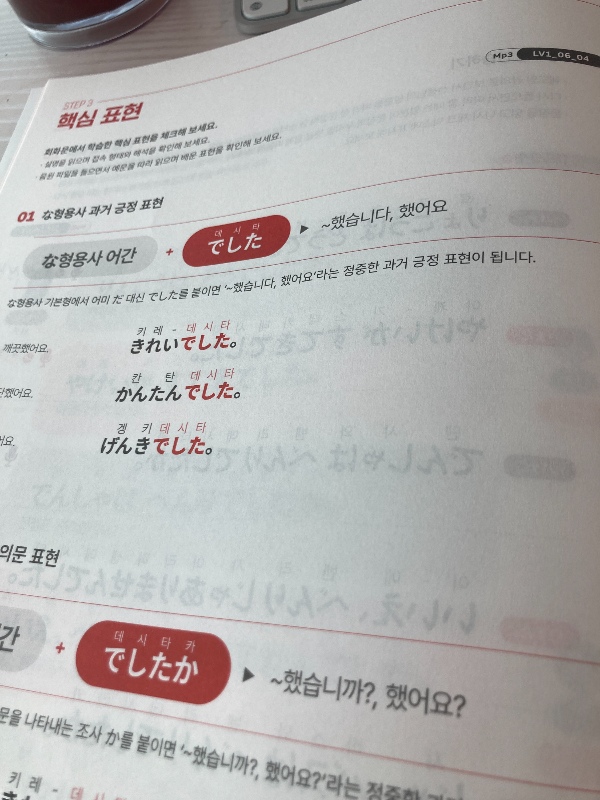 Mp3 LV1_06_04
STEP 3
핵심 표현
회화문에서 학습한 핵심 표현을 체크해 보세요.
· 설명을 읽으며 접속 형태와 해석을 확인해 보세요.
· 음원 파일을 들으면서 예문을 따라 읽으며 배운 표현을 확인해 보세요.
01 な형용사 과거 긍정 표현
데 시 타
な형용사 어간 + でした ▶ ~했습니다, 했어요
な형용사 기본형에서 어미 だ 대신 でした를 붙이면 '~했습니다, 했어요'라는 정중한 과거 긍정 표현이 됩니다.
키 레 - 데 시 타
깨끗했어요. きれいでした。
칸 탄 데 시 타
했어요. かんたんでした。
겡 키 데 시 타
어요. げんきでした。
의문 표현
데 시 타 카
간 + でしたか ▶ ~했습니까?, 했어요?
문을 나타내는 조사 か를 붙이면 '~했습니까?, 했어요?'라는 정중한
키 레 - 데 시